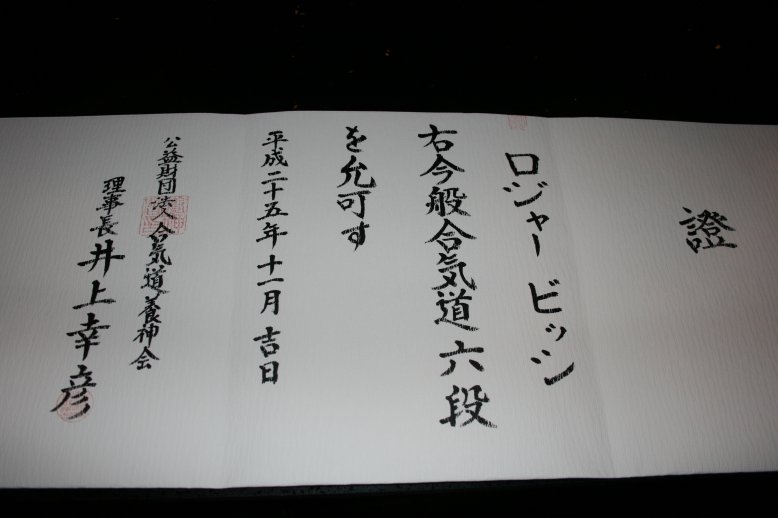 證
ロジャー ビッシ
右今般合気道六段
を允可す
平成二十五年十一月吉日
公益財団法人合気道養神会
理事長 井上幸彦